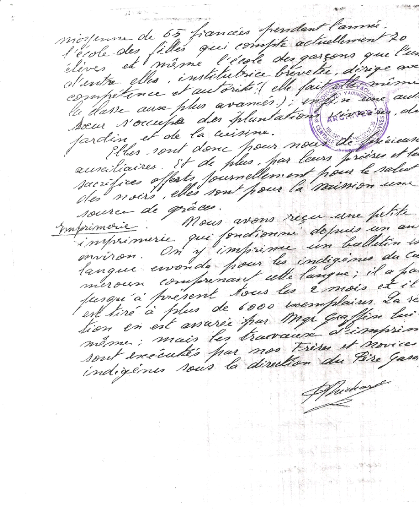 moyenne de 65 fiancées pendant l'année.
l'école des filles qui compte actuellement 70
élèves et même l'école des garçons que l'une
d'entre elles, institutrice brévetée, dirige avec
compétence et autorité (elle fait elle même
la classe aux plus avancés); enfin une autre
sœur s'occupe des plantations vivrières, du
jardin et de la cuisine.
Elles sont donc pour nous de précieuses
auxiliaires. Et de plus, par leurs prières et les
sacrifices offerts journellement pour le salut
des noirs, elles sont pour la mission une
source de grâces.
Imprimerie. Nous avons reçu une petite
imprimerie qui fonctionne depuis un an
environ. On y imprime un bulletin
langue ewondo pour les indigènes du Ca
meroun comprenant cette langue; il a pa
jusqu'à présent tous les 2 mois et il
en tiré à plus de 6000 exemplaires. La
tion en est assurée par Mgr Graffin lui
même; mais les travaux d'imprim
sont exécutés par nos Frères et novices
indigènes sous la direction du Père